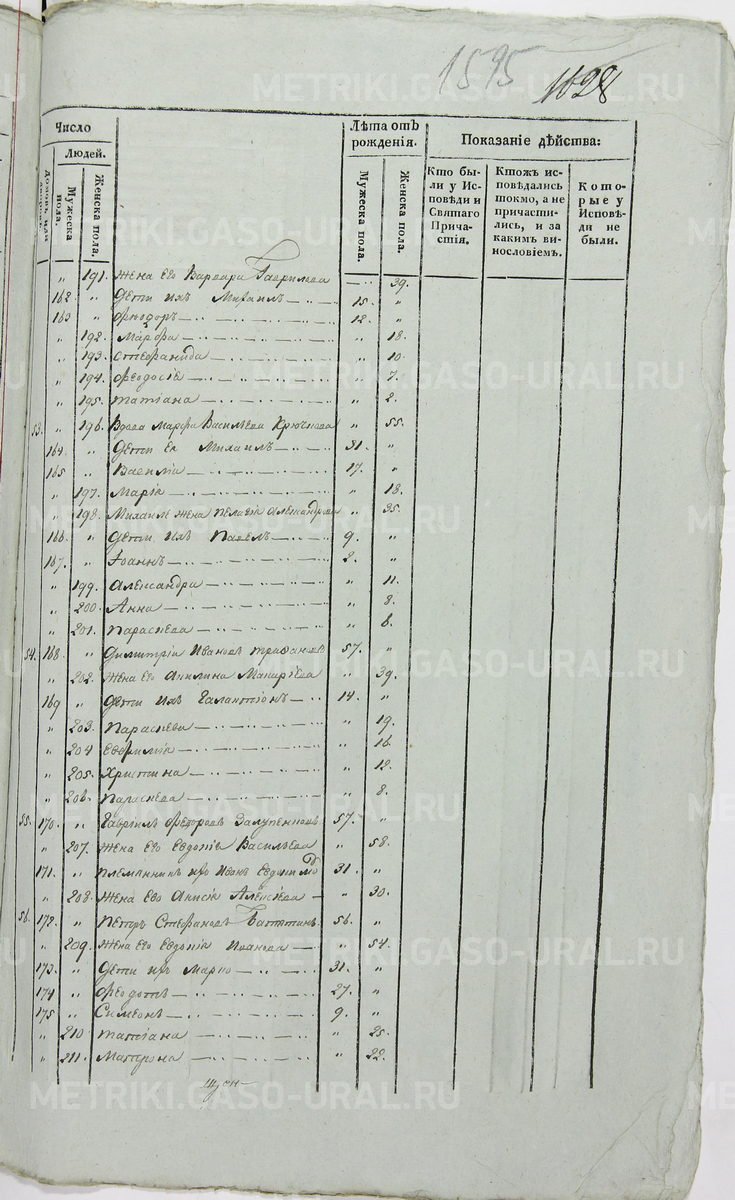 1595
1628
Число
Людей.
Домовъ или дворовъ.
Мужеска пола.
Женска пола.
Лѣта отъ рожденія.
Мужеска пола.
Женска пола.
Показаніе дѣйства:
Кто бы-
ли у Ис-
повѣди и
Святаго
Прича-
стія.
Ктожъ ис-
повѣдались
токмо, а не
причасти-
лись, и за
какимъ ви-
нословіемъ.
Кото-
рые у
Исповѣ-
ди не
были.
" 191. жена Его Варвара Гаврилова 39.
162 " Дети ихъ Михаилъ 15. "
163 " Феодоръ 12. "
" 192. Марфа " 18.
" 193. Стефанида " 10.
" 194. Феодосія " 7.
" 195. Татіана " 2.
53. " 196. Вдова Марфа Васильева " 55.
164. " Дети ея Михаилъ 31. "
165 " 17. "
" 197. Марія " 18.
" 198. Михаила жена Пелагія Александрова " 35.
166. " Дети ихъ Павелъ 9. "
167. " Іоаннъ 2. "
" 199. Александра " 11.
" 200. Анна " 8.
" 201. Параскева " 6.
54. 168. " Димитрій Ивановъ 57. "
" 202. жена Его Акилина Макарьева " 39.
169 " Дети ихъ Галактіонъ 14. "
" 203. Параскева " 19.
" 204 Евфимія " 16.
" 205. Христина " 12.
" 206. Параскева " 8.
55. 170. " Гавріилъ Феодоровъ 57. "
" 207. жена Его Евдокія Васильева " 58.
171. " племянникъ Иванъ 31. "
" 208. жена Его Анисія Алексѣева " 30.
56. 172. " Петръ Стефановъ 56. "
" 209. жена Его Евдокія Иванова " 54.
173. " Дети ихъ Марко 31. "
174 " Феодотъ 27. "
175 " Симеонъ 9. "
" 210 Татіана " 25.
" 211. Матрона " 22.
METRIKI.GASO-URAL.RU